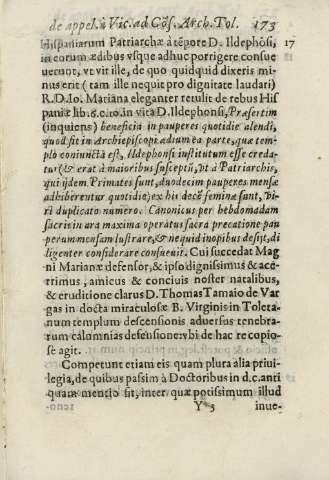 de appel. à Vic. ad Cõs. Arch. Tol. 173
Hispaniarum Patriarchæ à tẽpore D. Ildephõsi, 17
in eorum ædibus vsque adhuc porrigere consue
uerunt, vt vit ille, de quo quidquid dixeris mi-
nus erit (tam ille nequit pro dignitate laudari)
R.D.Io. Mariana eleganter retulit de rebus His
paniæ lib. 6.c.10.in vita D. Ildephonsi, Præsertim
(inquiens) beneficia in pauperes quotidie alendi,
quod sit in Archiepiscopi ædium ea parte, quæ tem-
plo coniunctà est, Ildephonsi institutum esse creda-
tur (& erat à maioribus susceptũ, vt à Patriarchis,
qui ijdem Primates sunt, duodecim pauperes mensæ
adhiberentur quotidie; ex his decẽ feminæ sunt, vi-
ri duplicato numero. Canonicus per hebdomadam
sacris in ara maxima operatus sacra precatione pau
perum mensam lustrare, & nequid inopibus desijt, di
ligenter considerare consueuit. Cui succedat Mag
ni Marianæ defensor, & ipso dignissimus & acer-
rimus, amicus & conciuis noster natalibus,
& eruditione clarus D. Thomas Tamaio de Var
gas in docta miraculosæ B. Virginis in Toleta-
num templum descensionis aduersus tenebra-
rum calumnias defensione: vbi de hac re copio-
se agit.
Competunt etiam eis quam plura alia priui-
legia, de quibus passim à Doctoribus in d.c. anti
qua fit mentio, inter quæ potissimum illud
Y 3 inue-